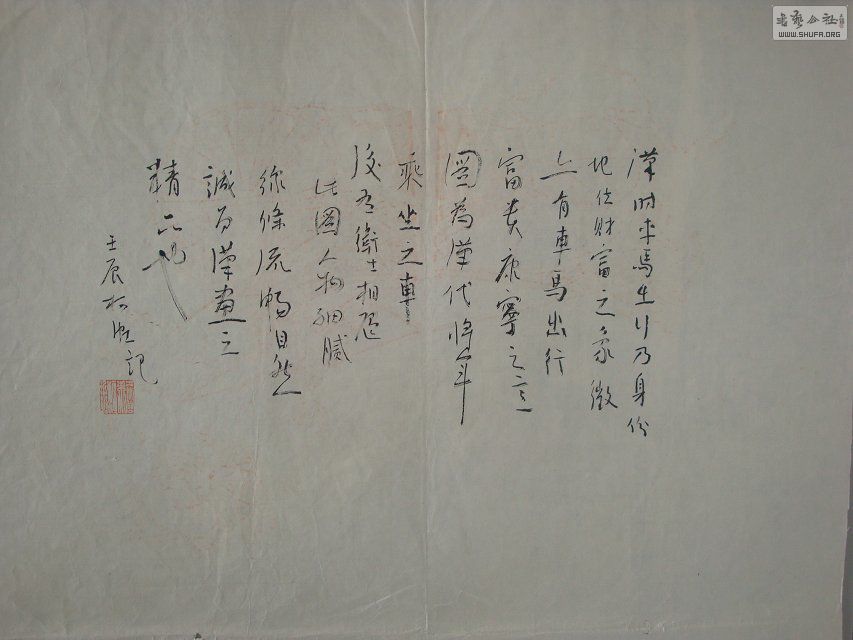 漢时車馬出行乃身份
地位財富之象徵
上有車馬出行
富貴康寧之意
圖為漢代將軍
乘坐之車
後有衛士相随
此圖人物細膩
綫條流暢自然
誠为漢畫之
精品也
壬辰 記
書藝公社
WWW.SHUFA.ORG